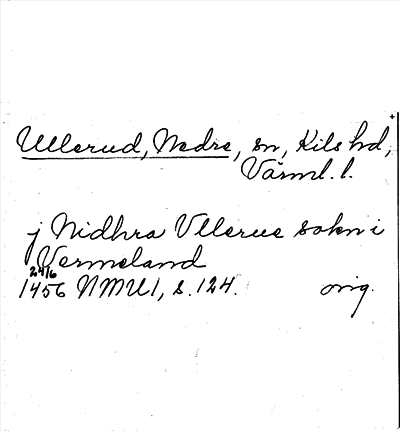 Ullerud, Nedre, sn, Kils hd,
Värml. l.
j Nidhra Vllerue sokn i
Vermeland
24/6
1456 NMU 1, s. 124. orig.